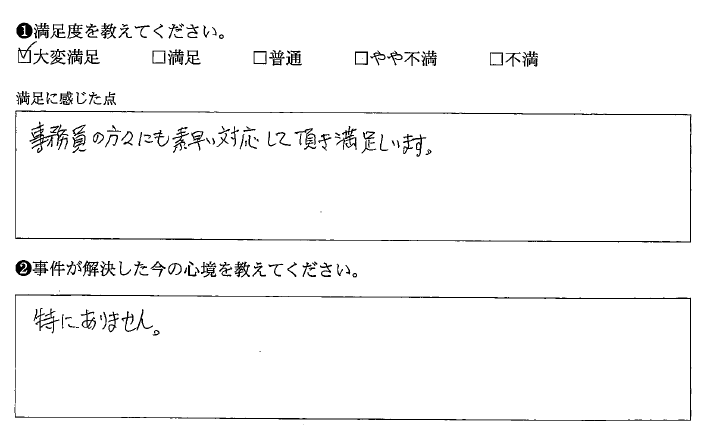 ❶満足度を教えてください。
☑大変満足 □満足 □普通 □やや不満 □不満
満足に感じた点
事務員の方々にも素早い対応して頂き満足しいます。
❷事件が解決した今の心境を教えてください。
特にありません。